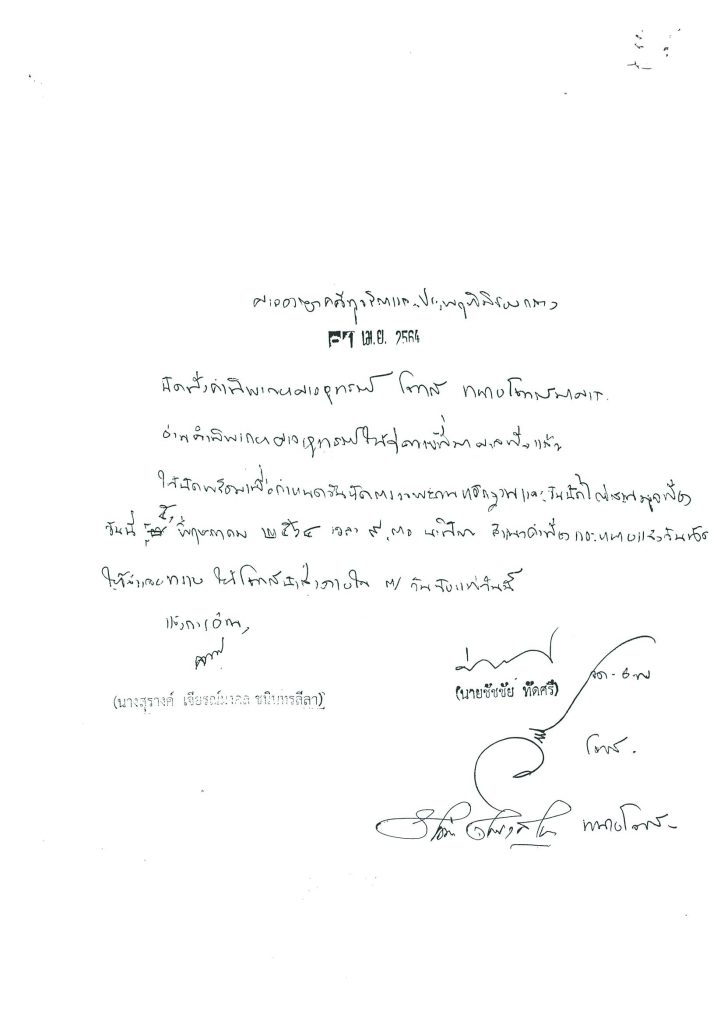 ศาลอาญาคดีทุจริตและประพฤติมิชอบกลาง
เม.ย. 2564
นัดฟังคำพิพากษาศาลอุทธรณ์ โจทก์ ทนายโจทก์มาศาล
อ่านคำพิพากษาศาลอุทธรณ์ให้คู่ความที่มาศาลฟังแล้ว
ให้นัดพร้อมเพื่อกำหนดวันนัดตรวจพยานหลักฐานและวันนัดไต่สวนมูลฟ้อง
วันที่ พฤษภาคม ๒๕๖๔ เวลา ๙.๓๐ นาฬิกา สำเนาคำฟ้อง
ให้จำเลยทราบ ให้โจทก์นำส่งภายใน ๗ วันนับแต่วันนี้
(นางสุรางค์ เจียรณ์มงคล ชนินทรลีลา)
(นายชัชชัย ทัดศรี)
โจทก์
ทนายโจทก์